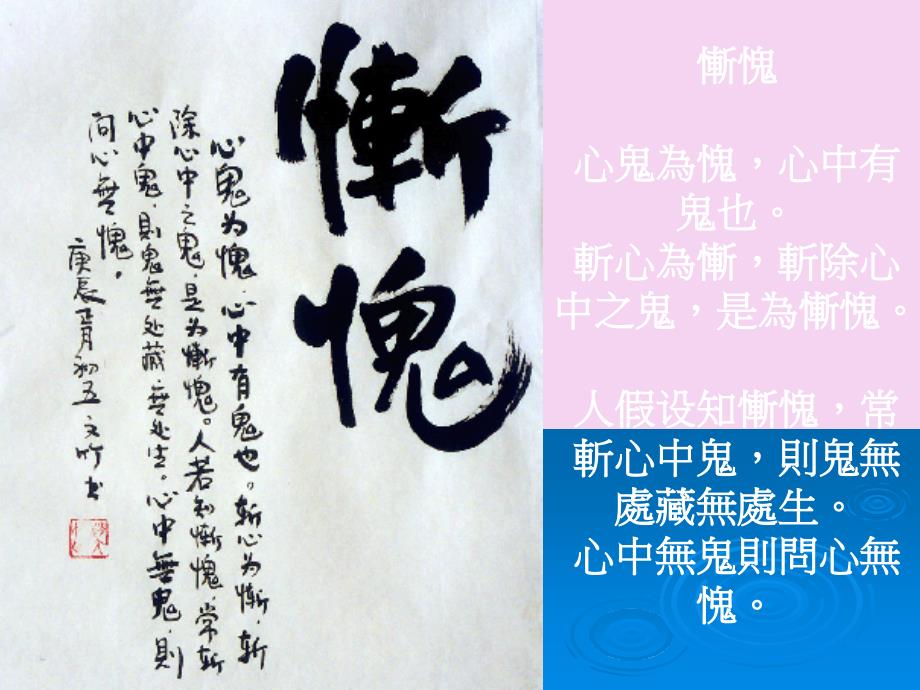 慚愧
心鬼为愧,心中有鬼也。斩心为慚,斩
除心中之鬼,是为慚愧。人若知慚愧,常斩
心中鬼,則鬼無处藏無处生。心中無鬼,則
问心無愧。
庚辰正月初五 文竹书
慚愧
心鬼為愧,心中有
鬼也。
斬心為慚,斬除心
中之鬼,是為慚愧。
人假设知慚愧,常
斬心中鬼,則鬼無
處藏無處生。
心中無鬼則問心無
愧。